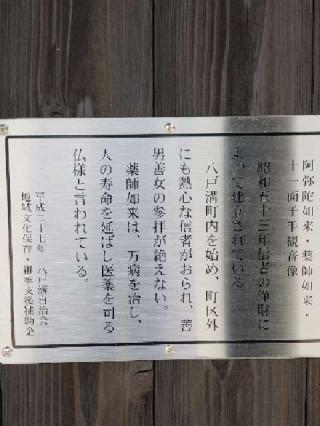 阿弥陀如来・薬師如来・
十一面千手観音像
昭和五十三年信者の浄財に
よって建立されている。
八戸溝町内を始め、町区外
にも熱心な信者がおられ、善
男善女の参拝が絶えない。
薬師如来は、万病を治し、
人の寿命を延ばし医薬を司る
仏様と言われている。
平成二十七年 八戸溝自治会
地域文化保存・継承支援補助金